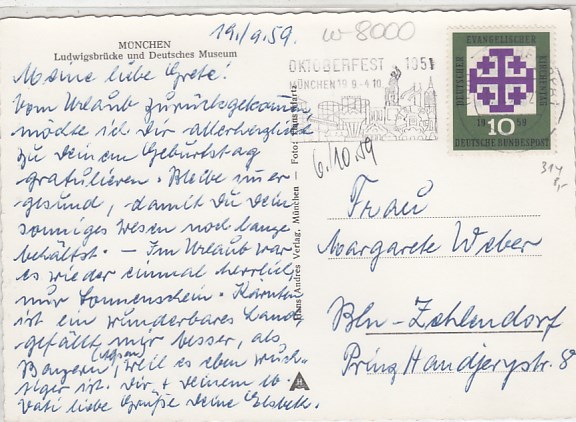 19./9.59
w-8000
MÜNCHEN
Ludwigsbrücke und Deutsches Museum
Meine liebe Grete!
Vom Urlaub zurückgekommen
möchte ich Dir allerherzlichst
zu Deinem Geburtstag
gratulieren. Bleibe immer
gesund, damit Du Dein
sonniges Wesen noch lange
behältst. – Im Urlaub war
es wieder einmal herrlich,
nur Sonnenschein. Kärnten
ist ein wunderbares Land
gefällt mir besser, als
Bayern, weil es eben wuch-
tiger ist. Dir + Deinem lb
Vati liebe Grüße Deine Elsbeth.
Hans Andres Verlag, München – Foto: Hans Huber
OKTOBERFEST 1959
MÜNCHEN 19.9.-4.10
6/10.59
EVANGELISCHER
DEUTSCHER
KIRCHENTAG
19 59
10
DEUTSCHE BUNDESPOST
314
Frau
Margarete Weber
Bln-Zehlendorf
Prinz Handjerystr. 8
A